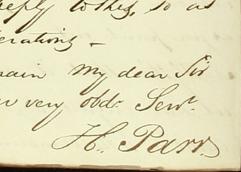 reply to this, so as
erations –
main my dear Sir
very obdt. Servt.
H. Parr